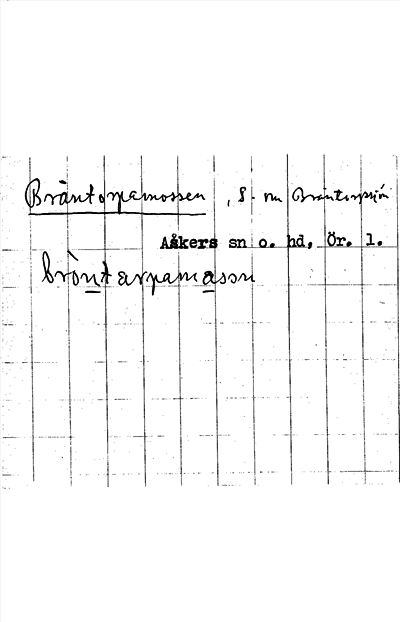 Bräntorpamossen, S. om Bräntorpsjön
Aåkers sn o. hd, Ör. l.
bròntarpamassn